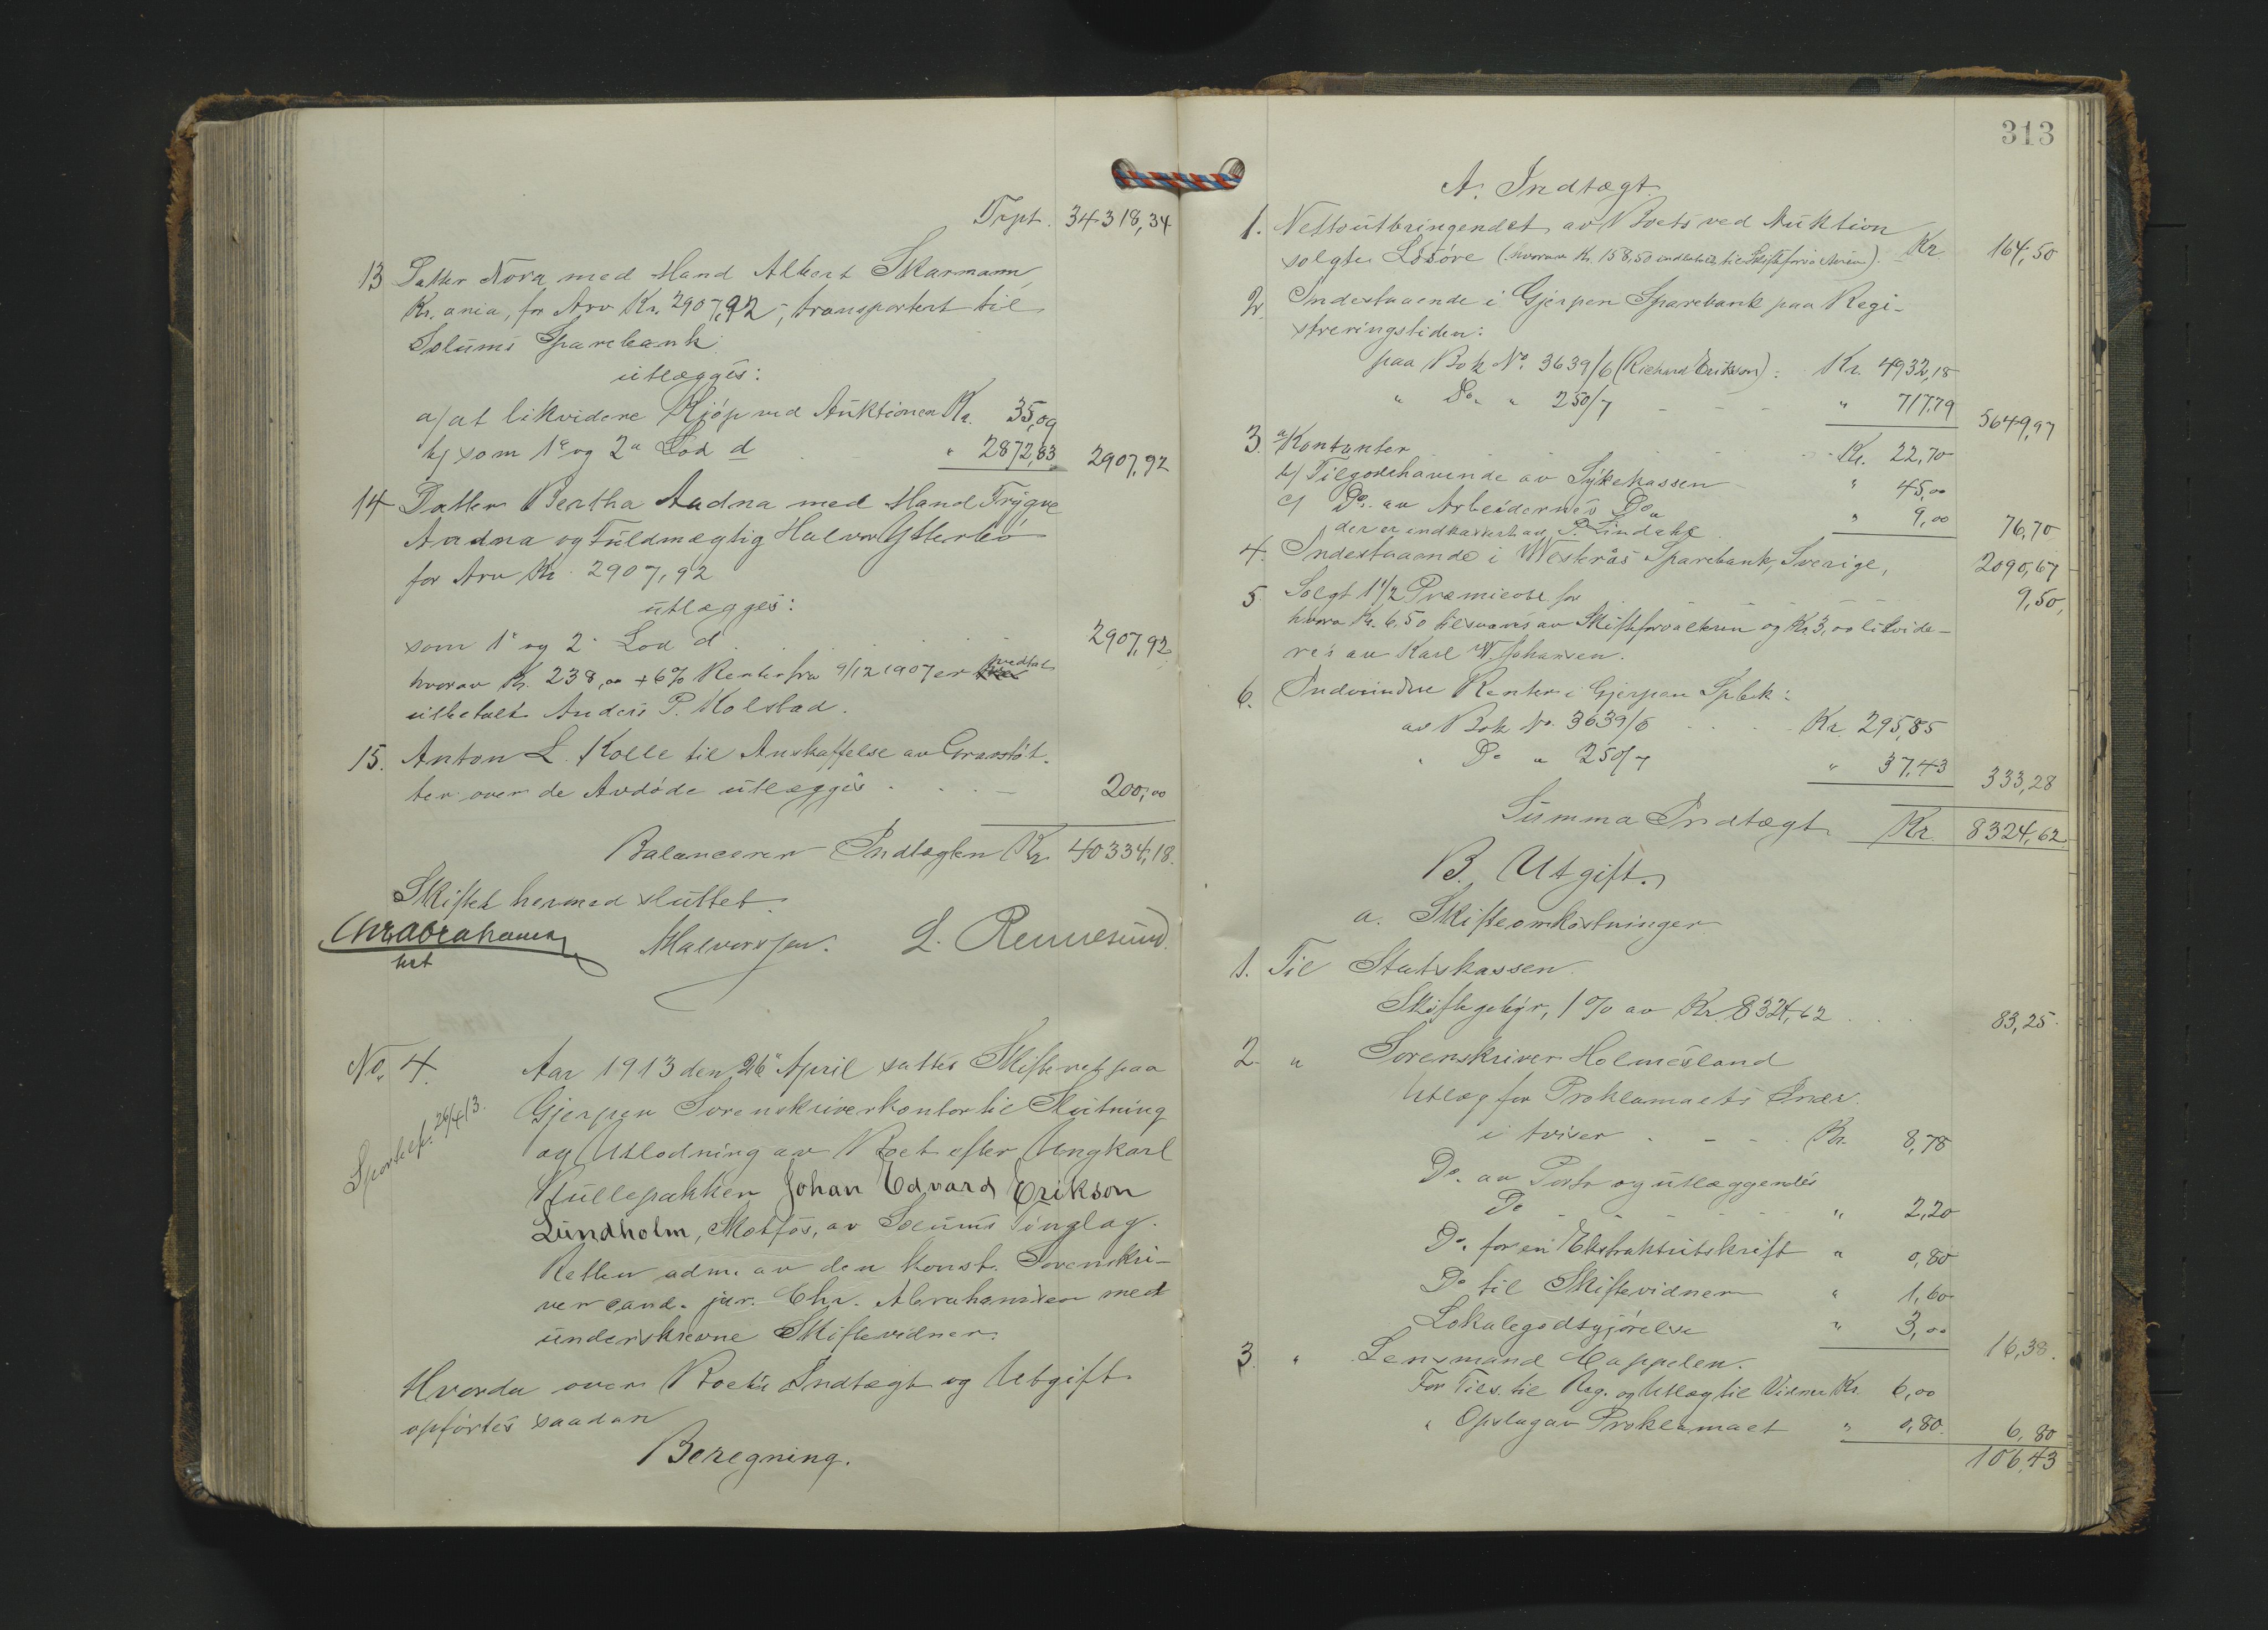 Trpt. 34318,34
13 Datter Nora med Mand Albert Skarmann,
Kr.ania, for Arv Kr. 2907,92, transportert til
Solums Sparebank
utlægges:
a/ at likvidere Kjøp ved Auktionen Kr. 35,09
b/ som 1e og 2e Lod d " 2872,83 2907,92
14 Datter Bertha Aadna med Mand Trygve
Aadna og Fuldmægtig Halvor Ytterbø
for Arv Kr. 2907,92
utlægges:
som 1e og 2e Lod d 2907,92
hvorav Kr. 238,00 + 6% Renter fra 9/12 1907 er
utbetalt Anders P. Kolstad.
15. Anton L. Kolle til Anskaffelse av Gravstøt-
ter over de Avdøde utlægges 200,00
Balancerer Indtægten Kr. 40334,18.
Skiftet hermed sluttet.
Chr Abrahamsen
kst
Halvorssen. L. Rennesund.
No. 4. Aar 1913 den 26e April sattes Skifteret paa
Sportelf. 26/4 13.
Gjerpen Sorenskriverkontor til Slutning
og Utlodning av Boet efter Ungkarl
Kullepakker Johan Edvard Erikson
Lundholm, Klotfos, av Solums Tinglag.
Retten adm. av den konst. Sorenskri-
ver cand. jur. Chr. Abrahamsen med
underskrevne Skiftevidner.
Hvorda over Boets Indtægt og Utgift
opførtes saadan
Beregning.
313
A. Indtægt.
1. Nettoutbringendet av Boets ved Auktion
solgte Løsøre (hvorav Kr. 158,50 indbetalt til Skifteforvalteren). Kr. 164,50
2. Indestaaende i Gjerpen Sparebank paa Regi-
streringstiden:
paa Bok No. 3639/6 (Richard Erikson): Kr. 4932,18
" Do. " 250/7 - - - " 717,79 5649,97
3. a/ Kontanter Kr. 22,70
b/ Tilgodehavende av Sykekassen " 45,00
c/ Do. av Arbeidernes Do. " 9,00 76,70
der er indkassert av P. Lindahl
4. Indestaaende i Westerås Sparebank, Sverige, 2090,67
5. Solgt 1 1/2 Præmieobl. for 9,50,
hvorav Kr. 6,50 tilsvares av Skifteforvalteren og Kr. 3,00 likvide-
res av Karl W. Johansen.
6. Indvundne Renter i Gjerpen Spbk:
av Bok No. 3639/6 Kr. 295,85
" Do " 250/7 " 37,43 333,28
Summa Indtægt Kr. 8324,62
B. Utgift.
a. Skifteomkostninger
1. Til Statskassen.
Skiftegebyr, 1% av Kr. 8324,62 83,25.
2. " Sorenskriver Holmesland
Utlæg for Proklamaets Indr.
i Aviser - - - Kr. 8,78
Do. av Porto og utlæggendes
Do " 2,20
Do. for en Ekstraktutskrift " 0,80
Do til Skiftevidner " 1,60
Lokalegodtgjørelse " 3,00 16,38.
3. " Lensmand Cappelen.
For Tils. til Reg. og Utlæg til Vidner Kr. 6,00
" Opslag av Proklamaet " 0,80. 6,80
106,43